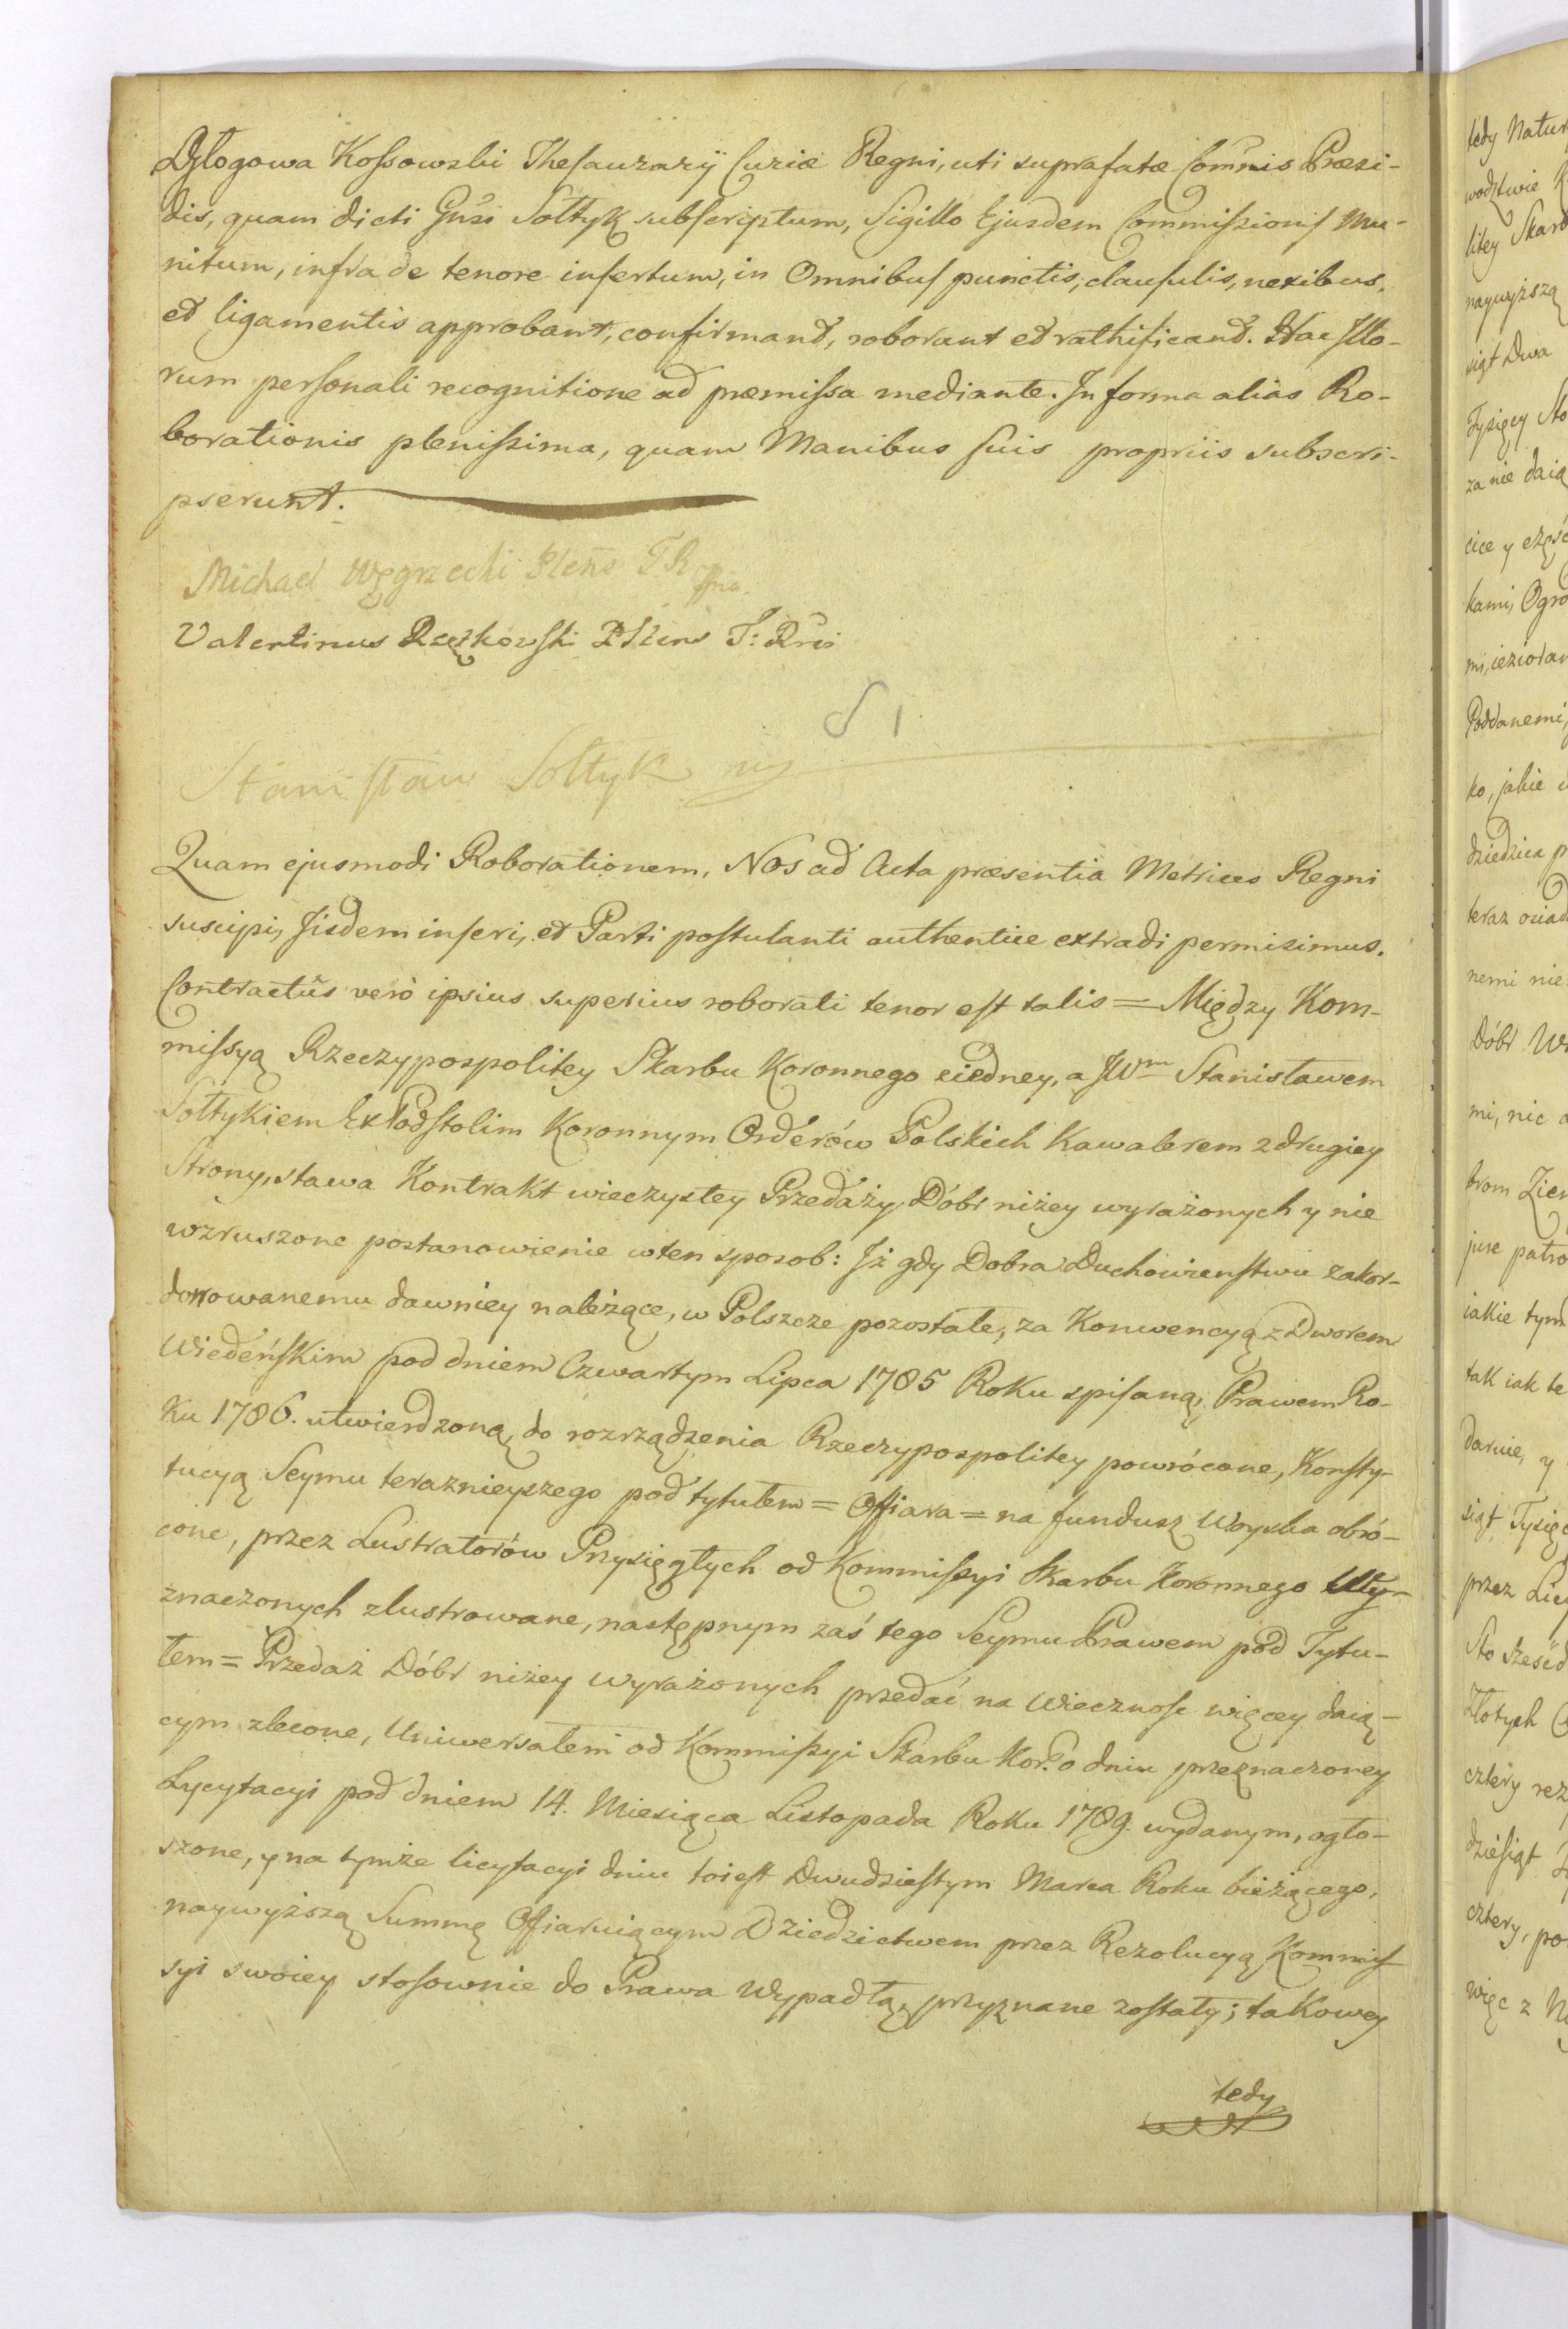 Dgłogowa Kossowski Thesaurarij Curiæ Regni, uti suprafatæ Commnis Præsi-
dis, quam dicti Gnsi Sołtyk subscriptum, Sigillo Ejusdem Commissionis Mu-
nitum, infra de tenore insertum, in Omnibus punctis, clausulis, nexibus,
et ligamentis approbant, confirmant, roborant et rathificant. Hac Illo-
rum personali recognitione ad præmissa mediante. In forma alias Ro-
borationis plenissima, quam Manibus suis propriis subscri-
pserunt.
Michael Węgrzecki Plens T. R
Valentinus Rzątkowski T: Rni
51
Stanisław Sołtyk mp
Quam ejusmodi Roborationem, Nos ad Acta præsentia Metrices Regni
suscipi, Iisdem inseri, et Parti postulanti authentice extradi permisimus.
Contractûs verò ipsius superius roborati tenor est talis = Między Kom-
missyą Rzeczypospolitey Skarbu Koronnego ziedney, a JWm Stanisławem
Sołtykiem Ex Podstolim Koronnym Orderów Polskich Kawalerem z drugiey
Strony, stawa Kontrakt wieczystey Przedaży Dóbr niżey wyrażonych y nie
wzruszone postanowienie w ten sposob: Iż gdy Dobra Duchowienstwu zakor-
donowanemu dawniey należące, w Polszcze pozostałe, za Konwencyą z Dworem
Wiedeńskim pod dniem Czwartym Lipca 1785 Roku spisaną, Prawem Ro-
ku 1786. utwierdzoną, do rozrządzenia Rzeczypospolitey powrócone, Konsty-
tucyą Seymu teraznieyszego pod tytułem = Offiara = na fundusz Woyska obró-
cone, przez Lustratorów Przysięgłych od Kommissyi Skarbu Koronnego Wy-
znaczonych zlustrowane, następnym zaś tego Seymu Prawem pod Tytu-
łem = Przedaż Dóbr niżey wyrażonych przedać na Wieczność więcey daią-
cym zlecone, Uniwersałem od Kommissyi Skarbu Kor: o dniu przeznaczoney
Lycytacyi pod dniem 14. Miesiąca Listopada Roku 1789. wydanym, ogło-
szone, y na tymże licytacyi dniu toiest Dwudziestym Marca Roku bieżącego,
naywyższą Summę Ofiaruiącym Dziedzictwem przez Rezolucyą Kommis-
syi swoiey stosownie do Prawa Wypadłą, przyznane zostały; takowey
tedy
tedy Natur
wodztwie K
litey Skarb
naywyższą
sigt Dwa
Tysięcy Sto
za nie daią
cice y część
kami, Ogro
mi, iezioram
Poddanemi,
ko, jakie
dziedzica p
teraz osiad
nemi nie
Dóbr W
mi, nic
brom Ziem
jure patro
iakie tym
tak iak te
darnie, y
sigt Tysięc
przez Licy
Sto sześćd
Złotych
cztery rez
dziesigt
cztery, po
więc z N